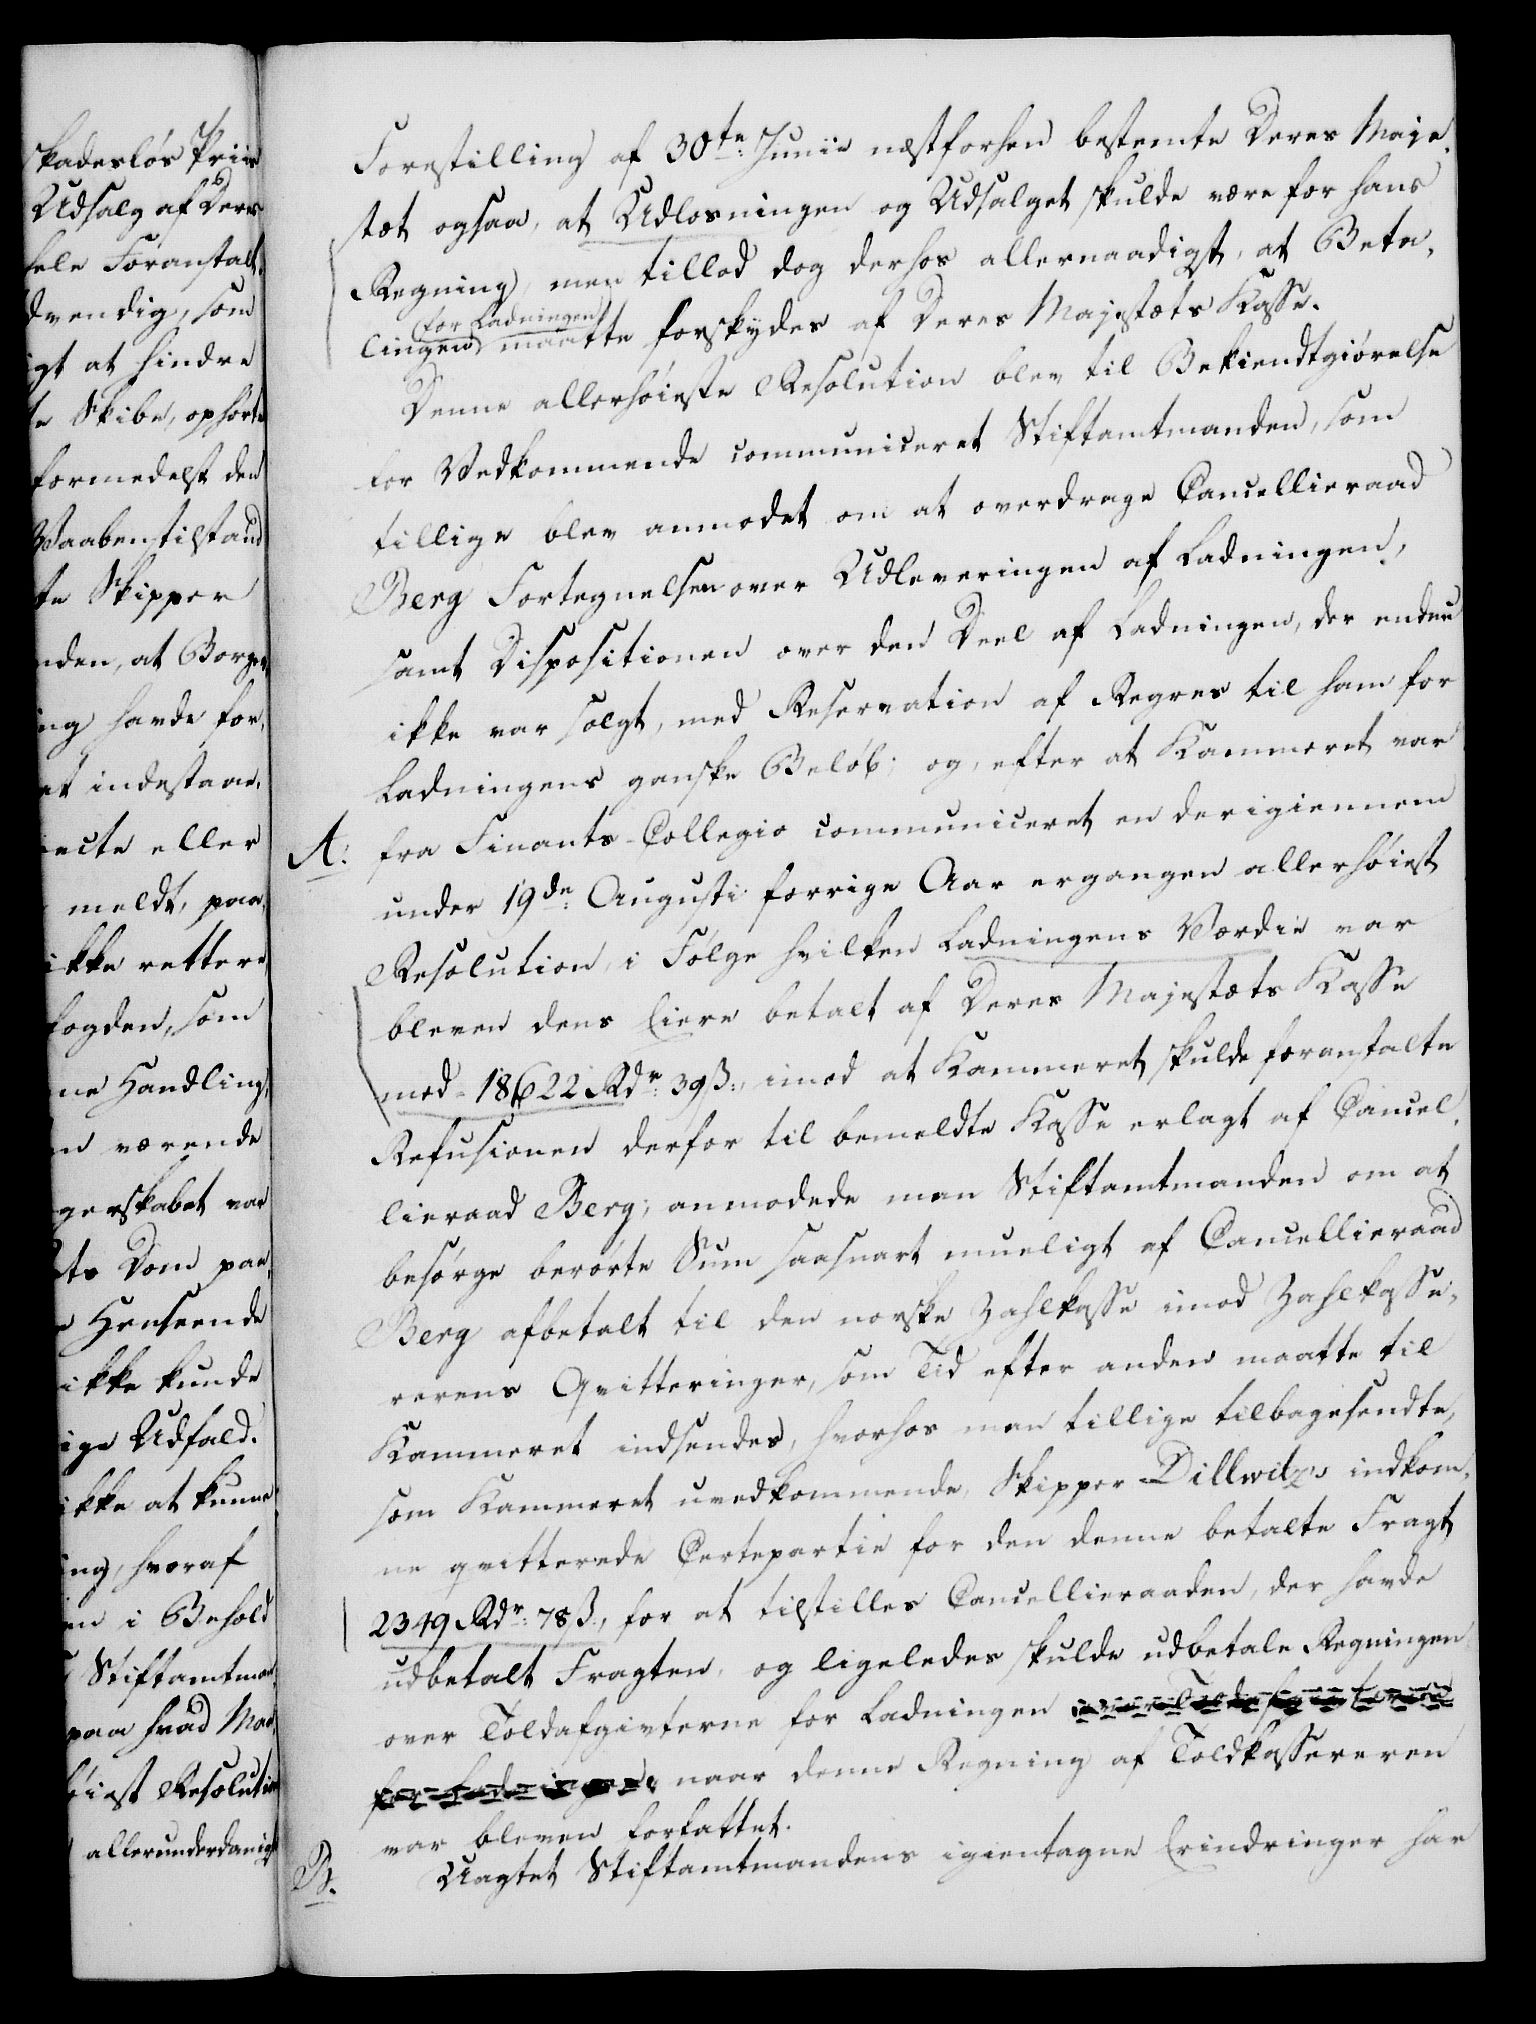 skadesløs Priis
Udsalg af Deres
hele Foranstalt.
dvendig, som
gt at hindre
te Skibe, ophørte
formedelst den
Vaabenstilstand
te Skipper
nden, at Borge,
ing havde for,
et indestaae,
ecte eller
meldt, paa,
ikke rettere
fogden, som
ne Handling,
n værende
gerskabet var
ts Dom paa,
e Henseende
ikke kunde
ige Udfald.
ikke at kunne
ing, hvoraf
en i Behold
Stiftamtman,
paa hvad Maa,
høiest Resolution
allerunderdanigst
Forestilling af 30te: Junii næstforhen bestemte Deres Maje,
stæt ogsaa, at Udlosningen og Udsalget skulde være for hans
Regning, men tillod dog derhos allernaadigst, at Beta,
for Ladningen
lingen maatte forskydes af Deres Majestæts Kasse.
Denne allerhøieste Resolution blev til Bekiendtgiørelse
for Vedkommende communiceret Stiftamtmanden, som
tillige blev anmodet om at overdrage Cancellieraad
Berg Fortegnelsen over Udleveringen af Ladningen,
samt Dispositionen over den Deel af Ladningen, der endnu
ikke var solgt, med Reservation af Regres til ham for
Ladningens ganske Beløb; og, efter at Kammeret var
A. fra Finants-Collegio communiceret en derigiennem
under 19de: Augusti forrige Aar ergangen allerhøiest
Resolution, i Følge hvilken Ladningens Værdie var
bleven dens Eiere betalt af Deres Majestæts Kasse
med 18622 Rdr. 39 ß., imod at Kammeret skulde foranstalte
Refusionen derfor til bemeldte Kasse erlagt af Cancel,
lieraad Berg; anmodede man Stiftamtmanden om at
besørge berørte Sum saasnart mueligt af Cancellieraad
Berg afbetalt til den norske Zahlkasse imod Zahlkasse,
rerens Qvitteringer, som Tid efter anden maatte til
Kammeret indsendes, hvorhos man tillige tilbagesendte,
som Kammeret uvedkommende, Skipper Dillwitz's indkom,
ne qvitterede Certepartie for den denne betalte Fragt
2349 Rdr. 78 ß., for at tilstilles Cancellieraaden, der havde
udbetalt Fragten, og ligeledes skulde udbetale Regningen
over Toldafgivterne for Ladningen
naar denne Regning af Toldkassereren
var bleven forfattet.
B. Uagtet Stiftamtmandens igientagne Erindringer har